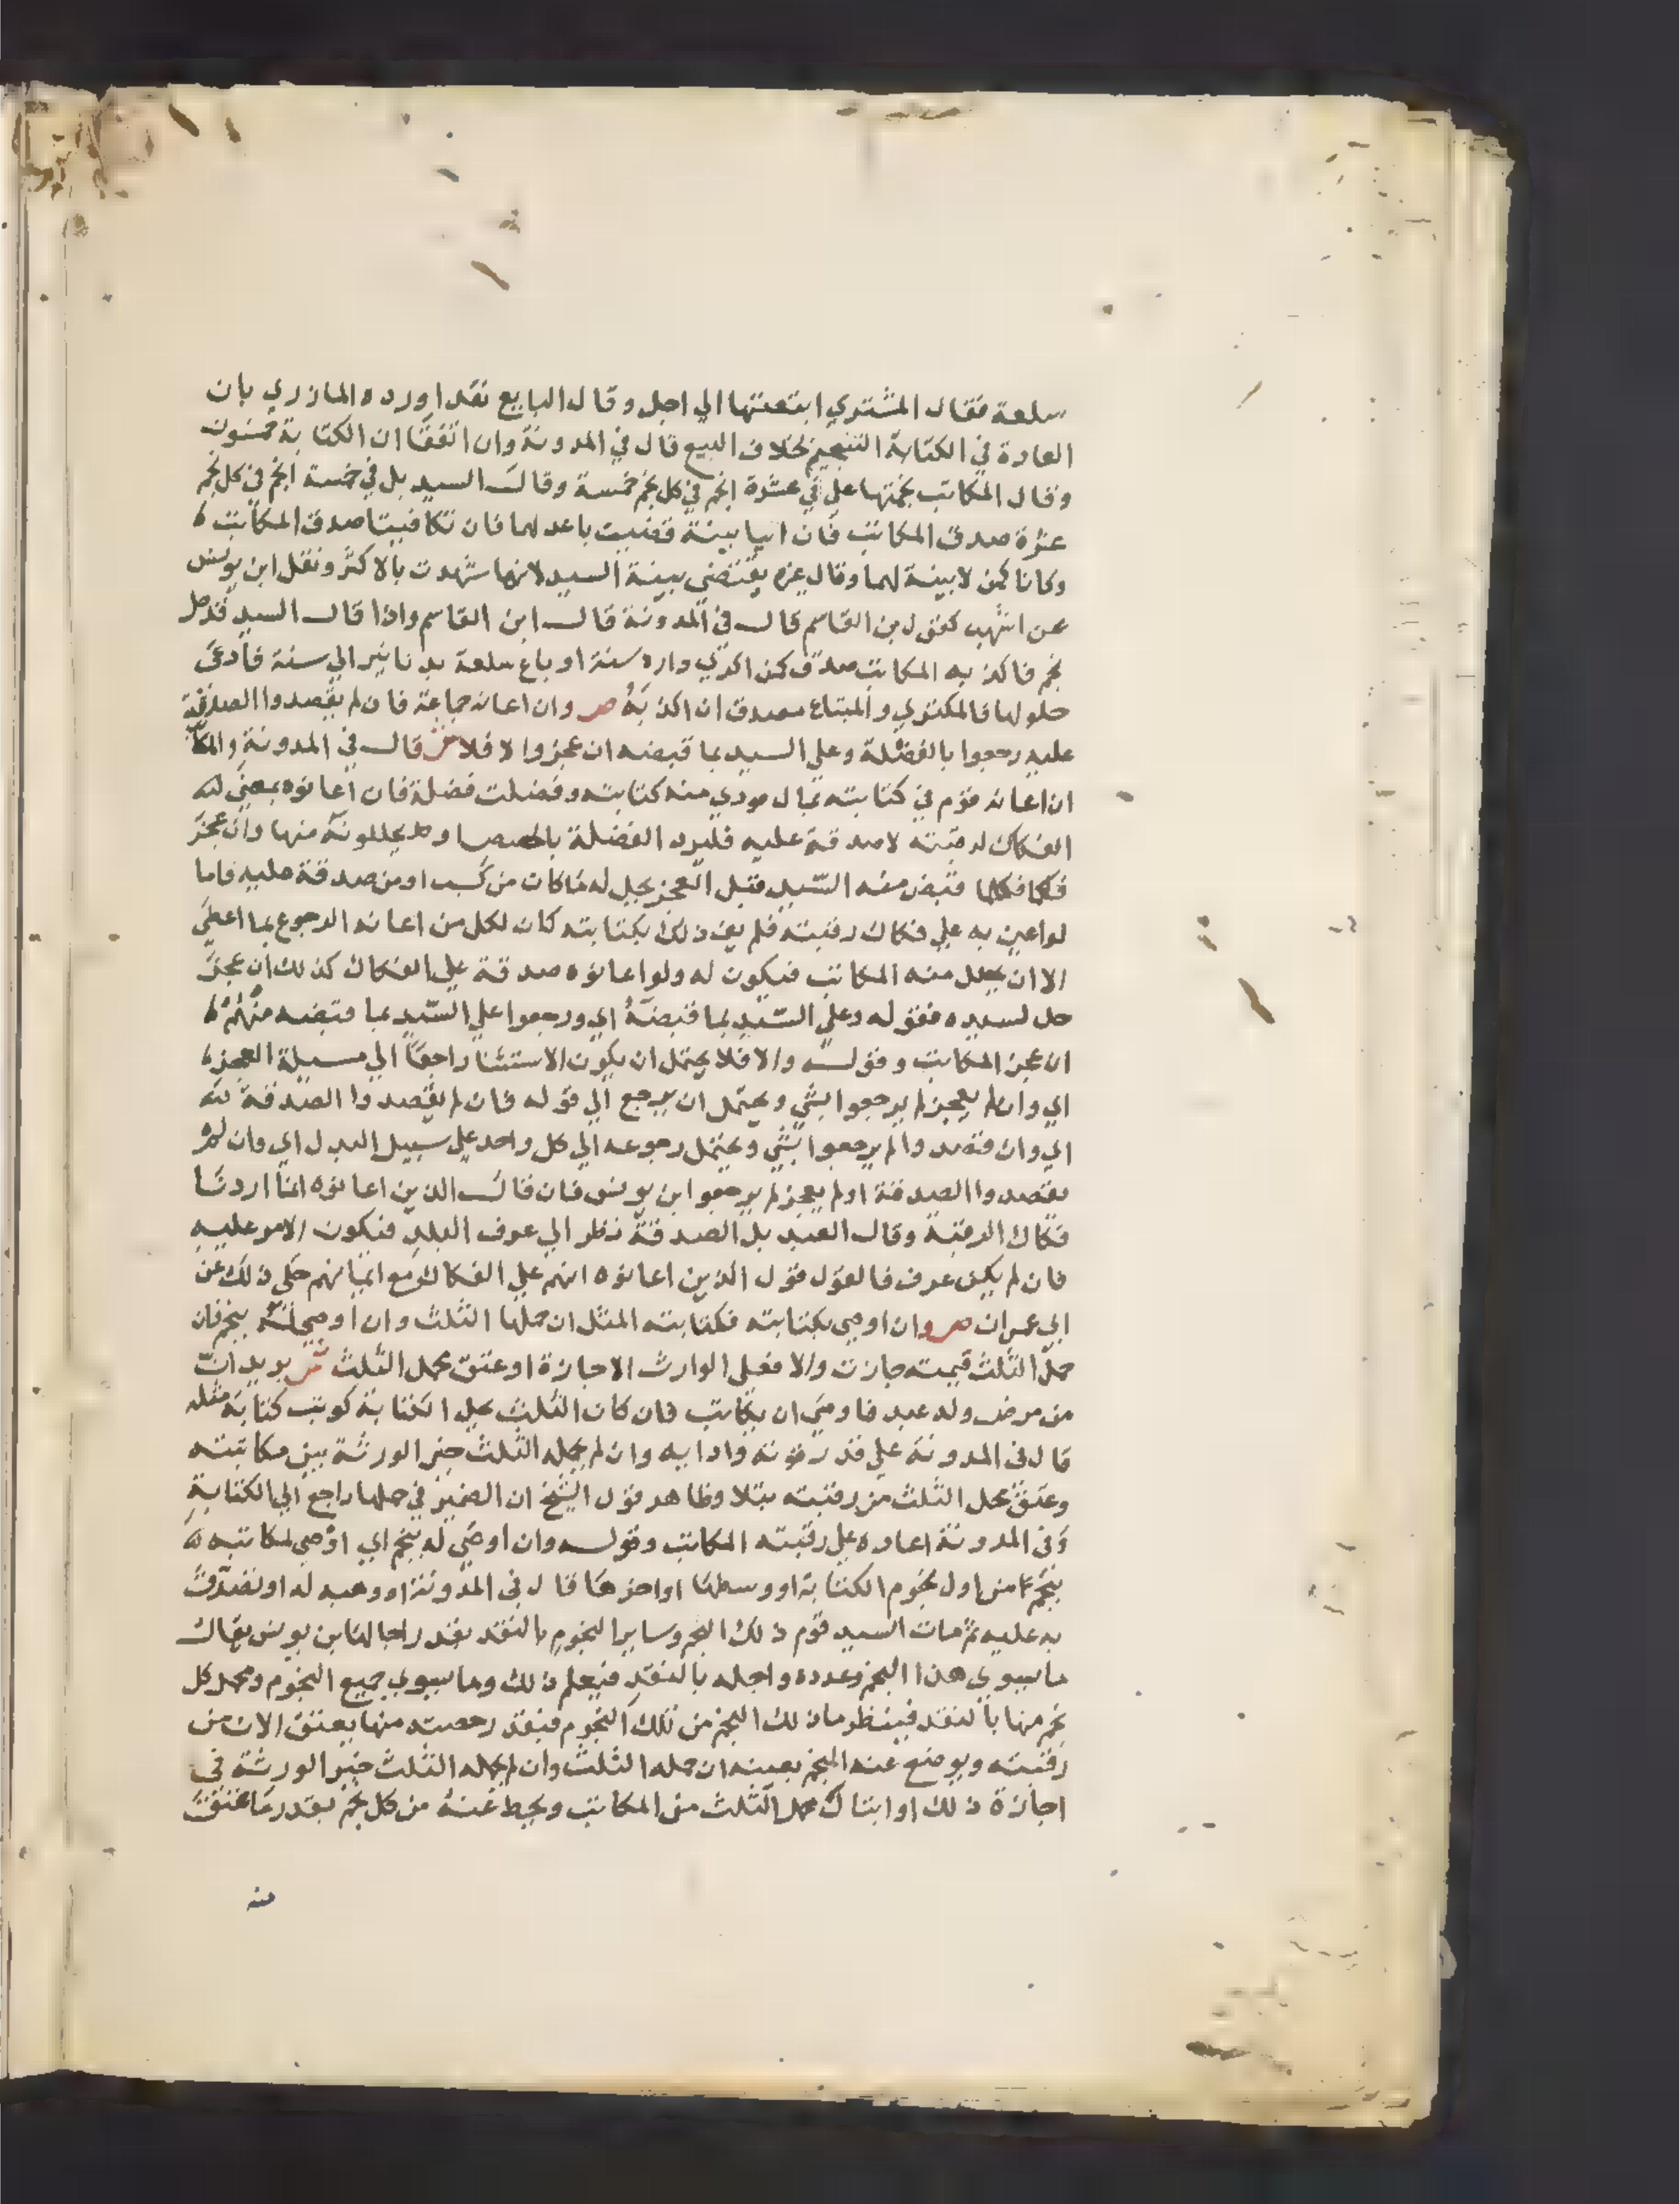 سلعة فقال المشتري ابتعتها الي اجل وقال البايع نقدا ورده المازري بان
العادة في الكتابة التنجيم بخلاف البيع قال في المدونة وان اتفقا ان الكتابة خمسون
وقال المكاتب نجمتها علي في عشرة انجم في كل نجم خمسة وقالت السيد بل في خمسة انجم في كل نجم
عشرة صدق المكاتب فان اتيا ببينة قضيت باعدلهما فان تكافيتا صدق المكاتب
وكانا كمن لا بينة لهما وقال غيره يقتضي بينة السيد لانها شهدت بالاكثر ونقل ابن يونس
عن اشهب كقول بن القاسم قال في المدونة قال ابن القاسم واذا قال السيد قد حل
نجم فاكذبه المكاتب صدق كمن اكري داره سنة او باع سلعة بدنانير الي سنة فادعي
حلولها فالمكتري والمبتاع مصدق ان اكذبه صر وان اعانه جماعة فان لم يقصدوا الصدقة
عليه رجعوا بالفضلة وعلي السيد بما قبضه ان عجز والا فلا ش قال في المدونة والمكاتب
ان اعانه قوم في كتابته بمال مودي منه كتابته وفضلت فضلة فان اعانوه بمعني
الفكاك لرقبته لا صدقة عليه فليرد الفضلة بالحصص او يحللونه منها وان عجز
فكلما قبض منه السيد قبل العجز يحل له ما كان من كسب او من صدقة عليه فاما
لو اعين به علي فكاك رقبته فلم يف ذلك بكتابته كان لكل من اعانه الرجوع بما اعطي
الا ان يحلل منه المكاتب فيكون له ولو اعانوه صدقة علي الفكاك كذلك ان عجز
حل لسيده فقوله وعلي السيد بما قبضه اي ورجعوا علي السيد بما قبضه منهم
ان عجز المكاتب وقوله والا فلا يحتمل ان يكون الاستثنا راجعا الي مسيلة العجز
اي وان لم يعجز لم يرجعوا بشي ويحتمل ان يرجع الي قوله فان لم يقصدوا الصدقة
اي وان قصدوا لم يرجعوا بشي ويحتمل رجوعه الي كل واحد علي سبيل البدل اي وان لم
يقصدوا الصدقة او لم يعجز لم يرجعوا ابن يونس فان قال الذين اعانوه انما اردنا
فكاك الرقبة وقال العبد بل الصدقة نظر الي عرف البلد فيكون الامر عليه
فان لم يكن عرف فالقول قول الذين اعانوه انهم علي الفكاك مع ايمانهم حكي ذلك عن
ابي عمران صر وان اوصي بكتابته فكتابته المثل ان حملها الثلث وان اوصي له بنجم فان
حمل الثلث قيمته جازت والا فعلي الوارث الاجازة او عتق محمل الثلث ش يريد ان
من مرض وله عبد فاوصي ان يكاتب فان كان الثلث يحمل الكتابة كوتب كتابة مثله
قال في المدونة علي قدر قوته وادايه وان لم يحمله الثلث خير الورثة بين مكاتبته
وعتق محمل الثلث من رقبته بتلا وظاهر قول الشيخ ان الضمير في حملها راجع الي الكتابة
وفي المدونة اعاده علي رقبته المكاتب وقوله وان اوصي له بنجم اي اوصي لمكاتبه
بنجم ما من اول نجوم الكتابة او وسطها او اخرها قال في المدونة او وهبه له او تصدق
به عليه ثم مات السيد قوم ذلك النجم وساير النجوم بالنقد بقدر اجالها ابن يونس يقال
ما يسوي هذا النجم وعدده واجله بالنقد فيعلم ذلك وما يسوي جميع النجوم ومحل كل
نجم منها بالنقد فينظر ما ذلك النجم من تلك النجوم فبقدر حصته منها يعتق الان من
رقبته ويوضع عنه النجم بعينه ان حمله الثلث وان لم يحمله الثلث خير الورثة في
اجازة ذلك او ابتاك محمل الثلث من المكاتب ويحط عنه من كل نجم بقدر ما عتق
منه